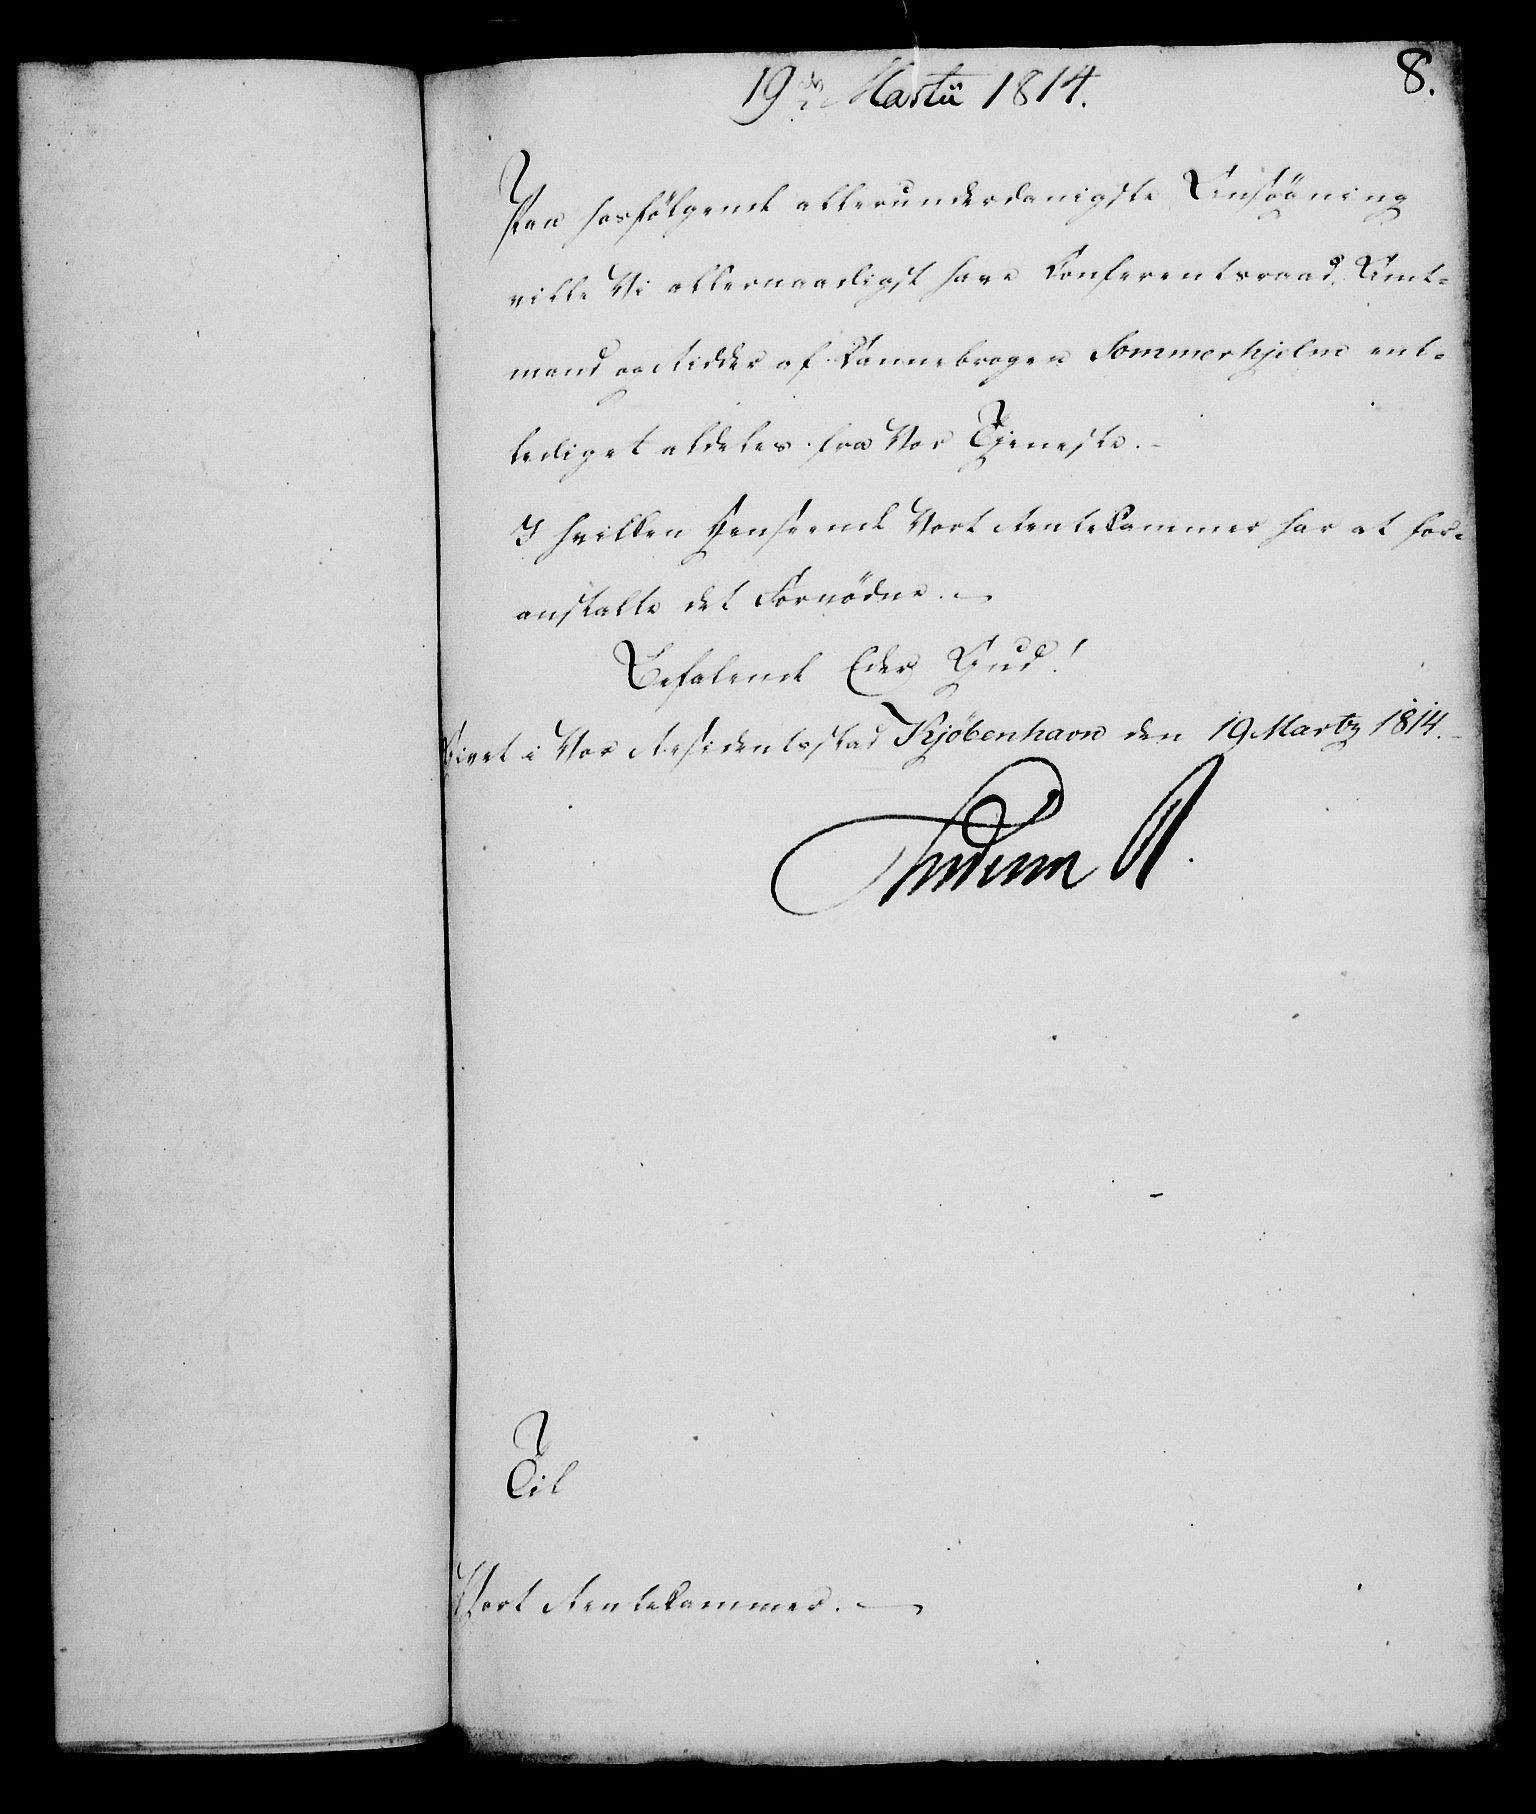 19de Martii 1814.
8.
Paa hosfölgende allerunderdanigste Ansögning
ville Vi allernaadigst have Conferentsraad, Amt-
mand og Ridder af Dannebrogen Sommerhjelm ent-
lediget aldeles fra Vor Tjeneste.-
I hvilken Henseende Vort Rentekammer har at for-
anstalte det Fornödne.-
Befalende Eder Gud!
Givet i Vor Residentsstad Kjöbenhavn den 19 Martz 1814.-
Frederik R.
Til
Vort Rentekammer.-